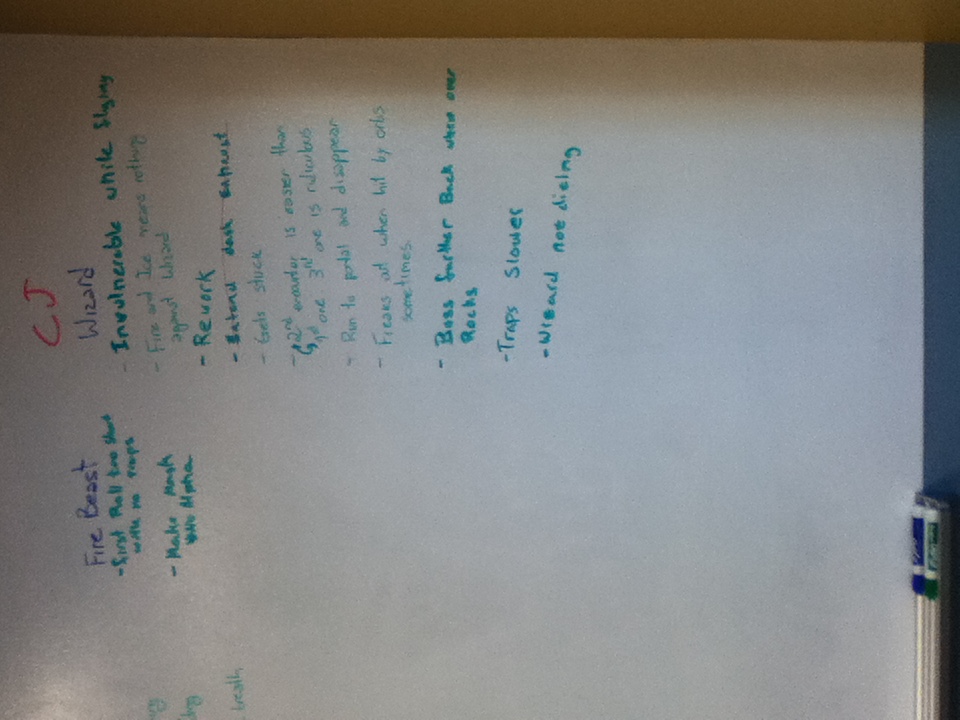 CJ
Fire Beast
-First Roll too short
with no traps
- Make Mask
Alpha
Wizard
- Invulnerable while flying
- Fire and Ice means nothing
against Wizard
- Rework
- Extend dash Exhaust
- Gets stuck
- 2nd encounter is easier than
1st one 3rd one is ridiculous
- Run to portal and disappear
- Freaks out when hit by orbs
sometimes.
- Boss further Back when over
Rocks
-Traps slower
-Wizard not dieing
breath